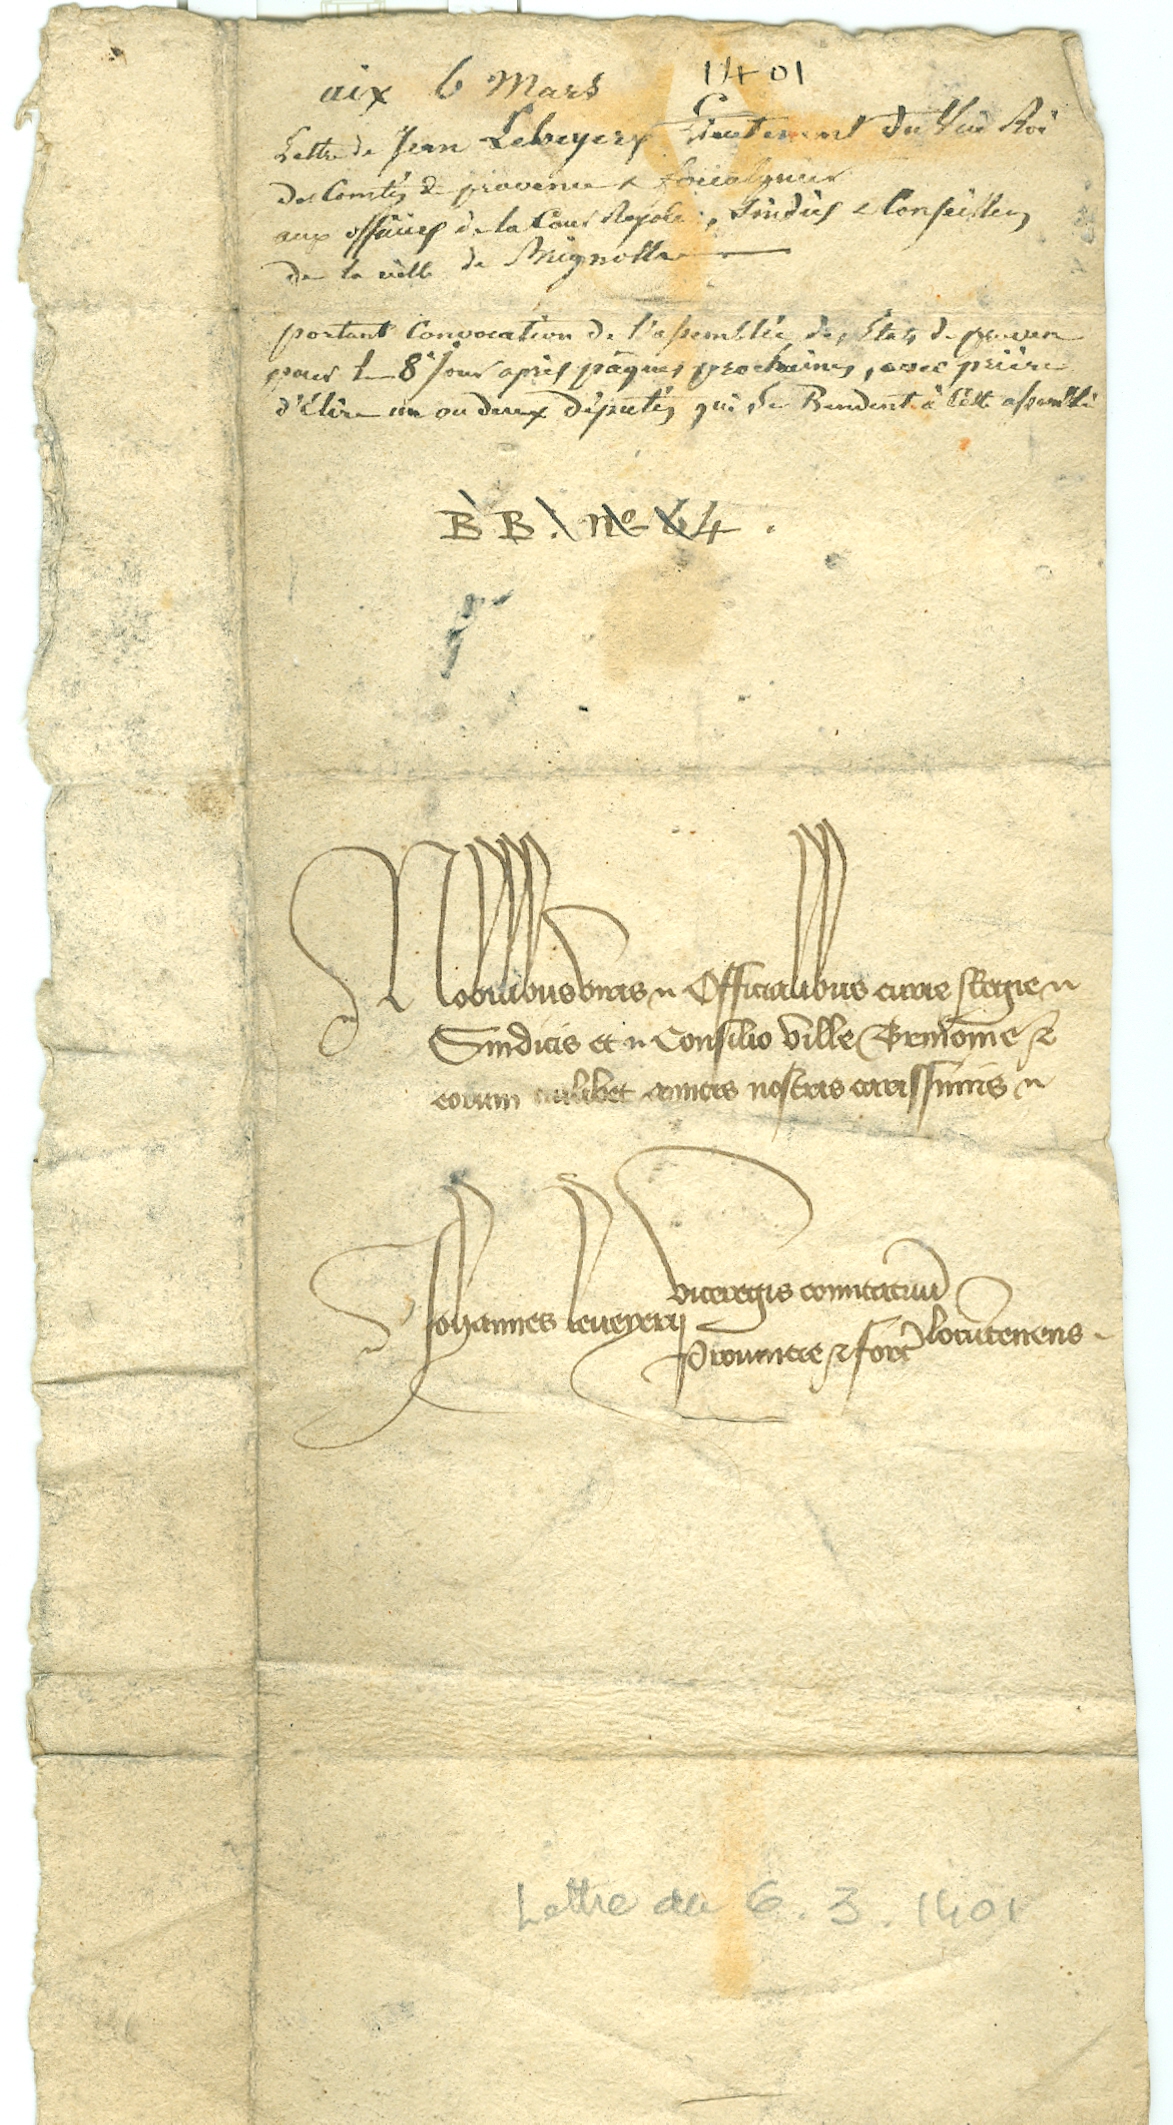 aix 6 Mars 1401
Lettre de Jean Lebeyery Lieutenent du Vice Roi
des Comtés de provence & forcalquier
aux officiers de la Cour Royale, Sindics & Conseillers
de la ville de Brignolle
portant Convocation de l'assemblée des Etats de provence
pour le 8e Jour après pâques prochaines, avec prière
d'Elire un ou deux députés qui se Rendent à Cette assemblée
BB. no 64.
Nobilibus viris Officialibus curie Regie
Sindicis et Consilio ville Brinonie &
eorum cuilibet amicis nostris carissimis
viceregis comitatuum
Johannes leveyerii locumtenens
Provincie & forc
Lettre du 6.3.1401